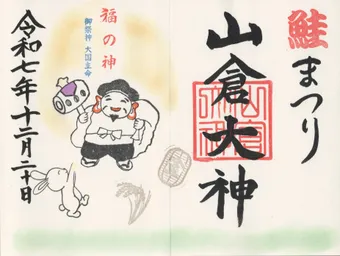 鮭まつり
山倉大神
福の神
御祭神 大国主命
令和七年十二月二十日